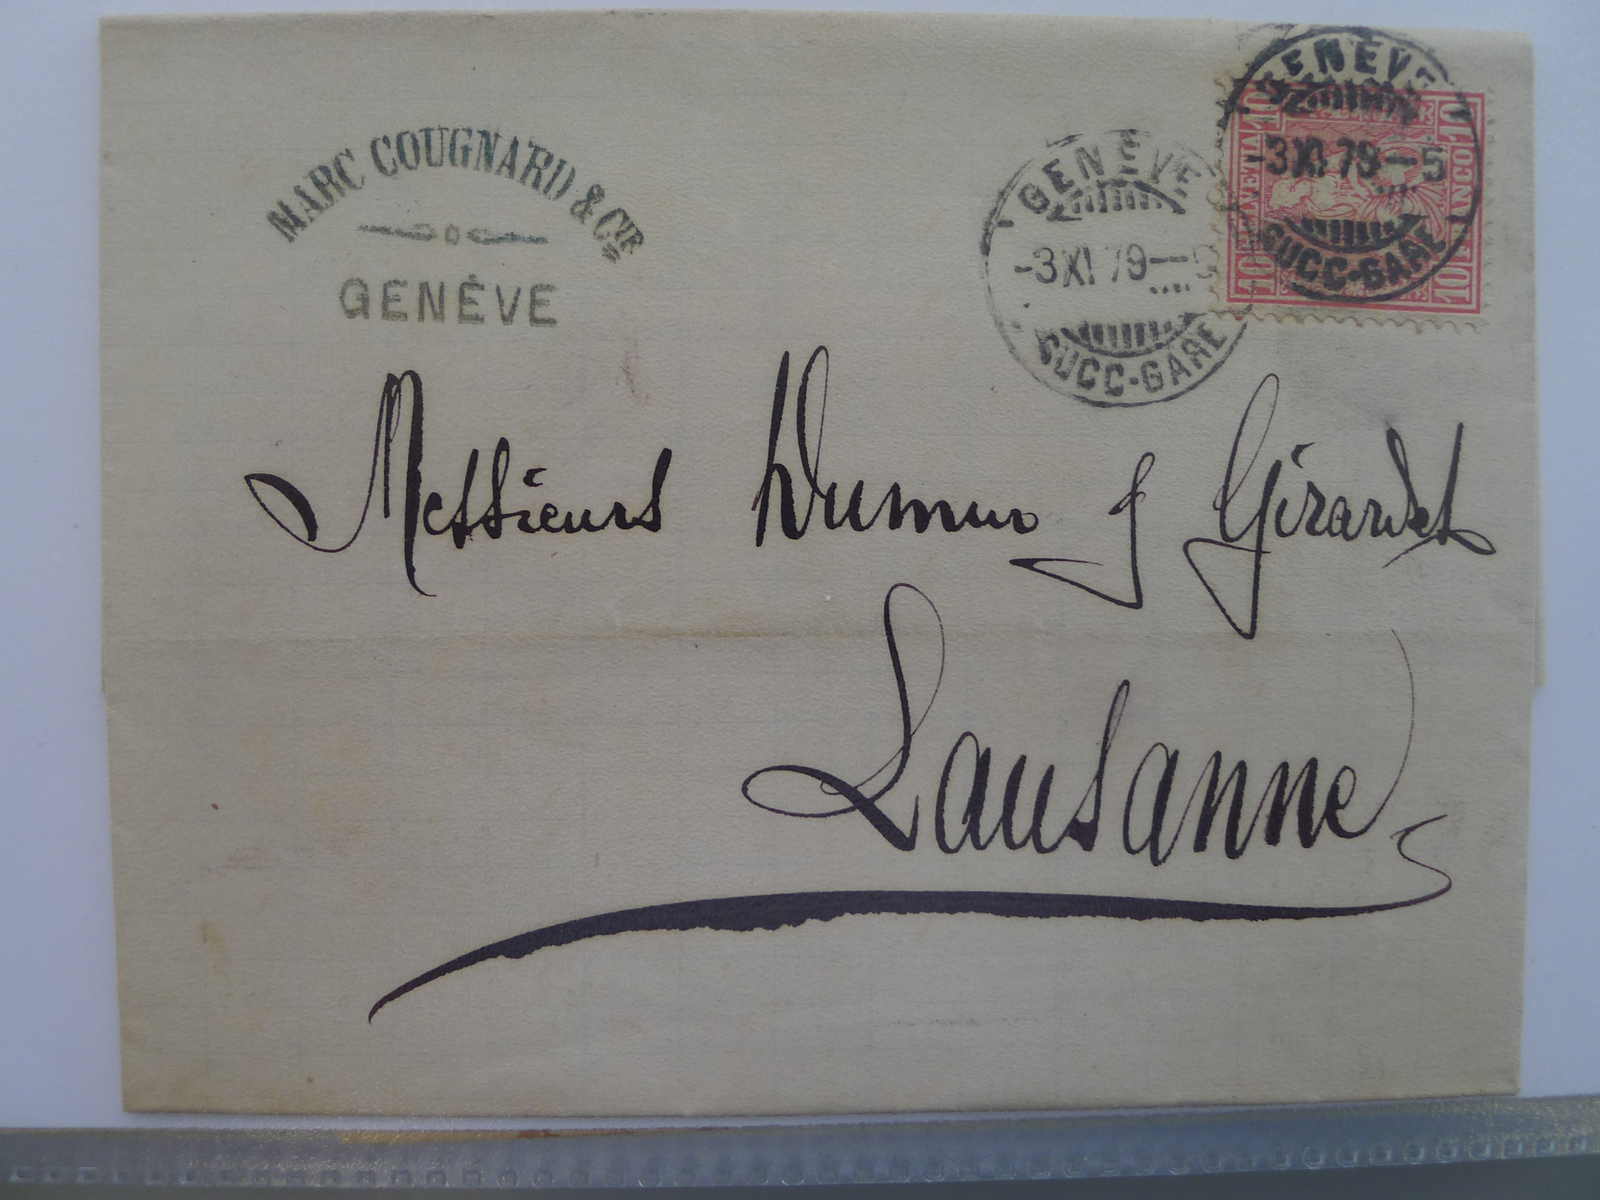 MARC COUGNARD & CIE
GENÈVE
GENÈVE
-3 XI 79
SUCC-GARE
GENÈVE
-3 XI 79 - 5
SUCC-GARE
10 10
HELVETIA
FRANCO
10 10
Messieurs Dumur & Girardet
Lausanne